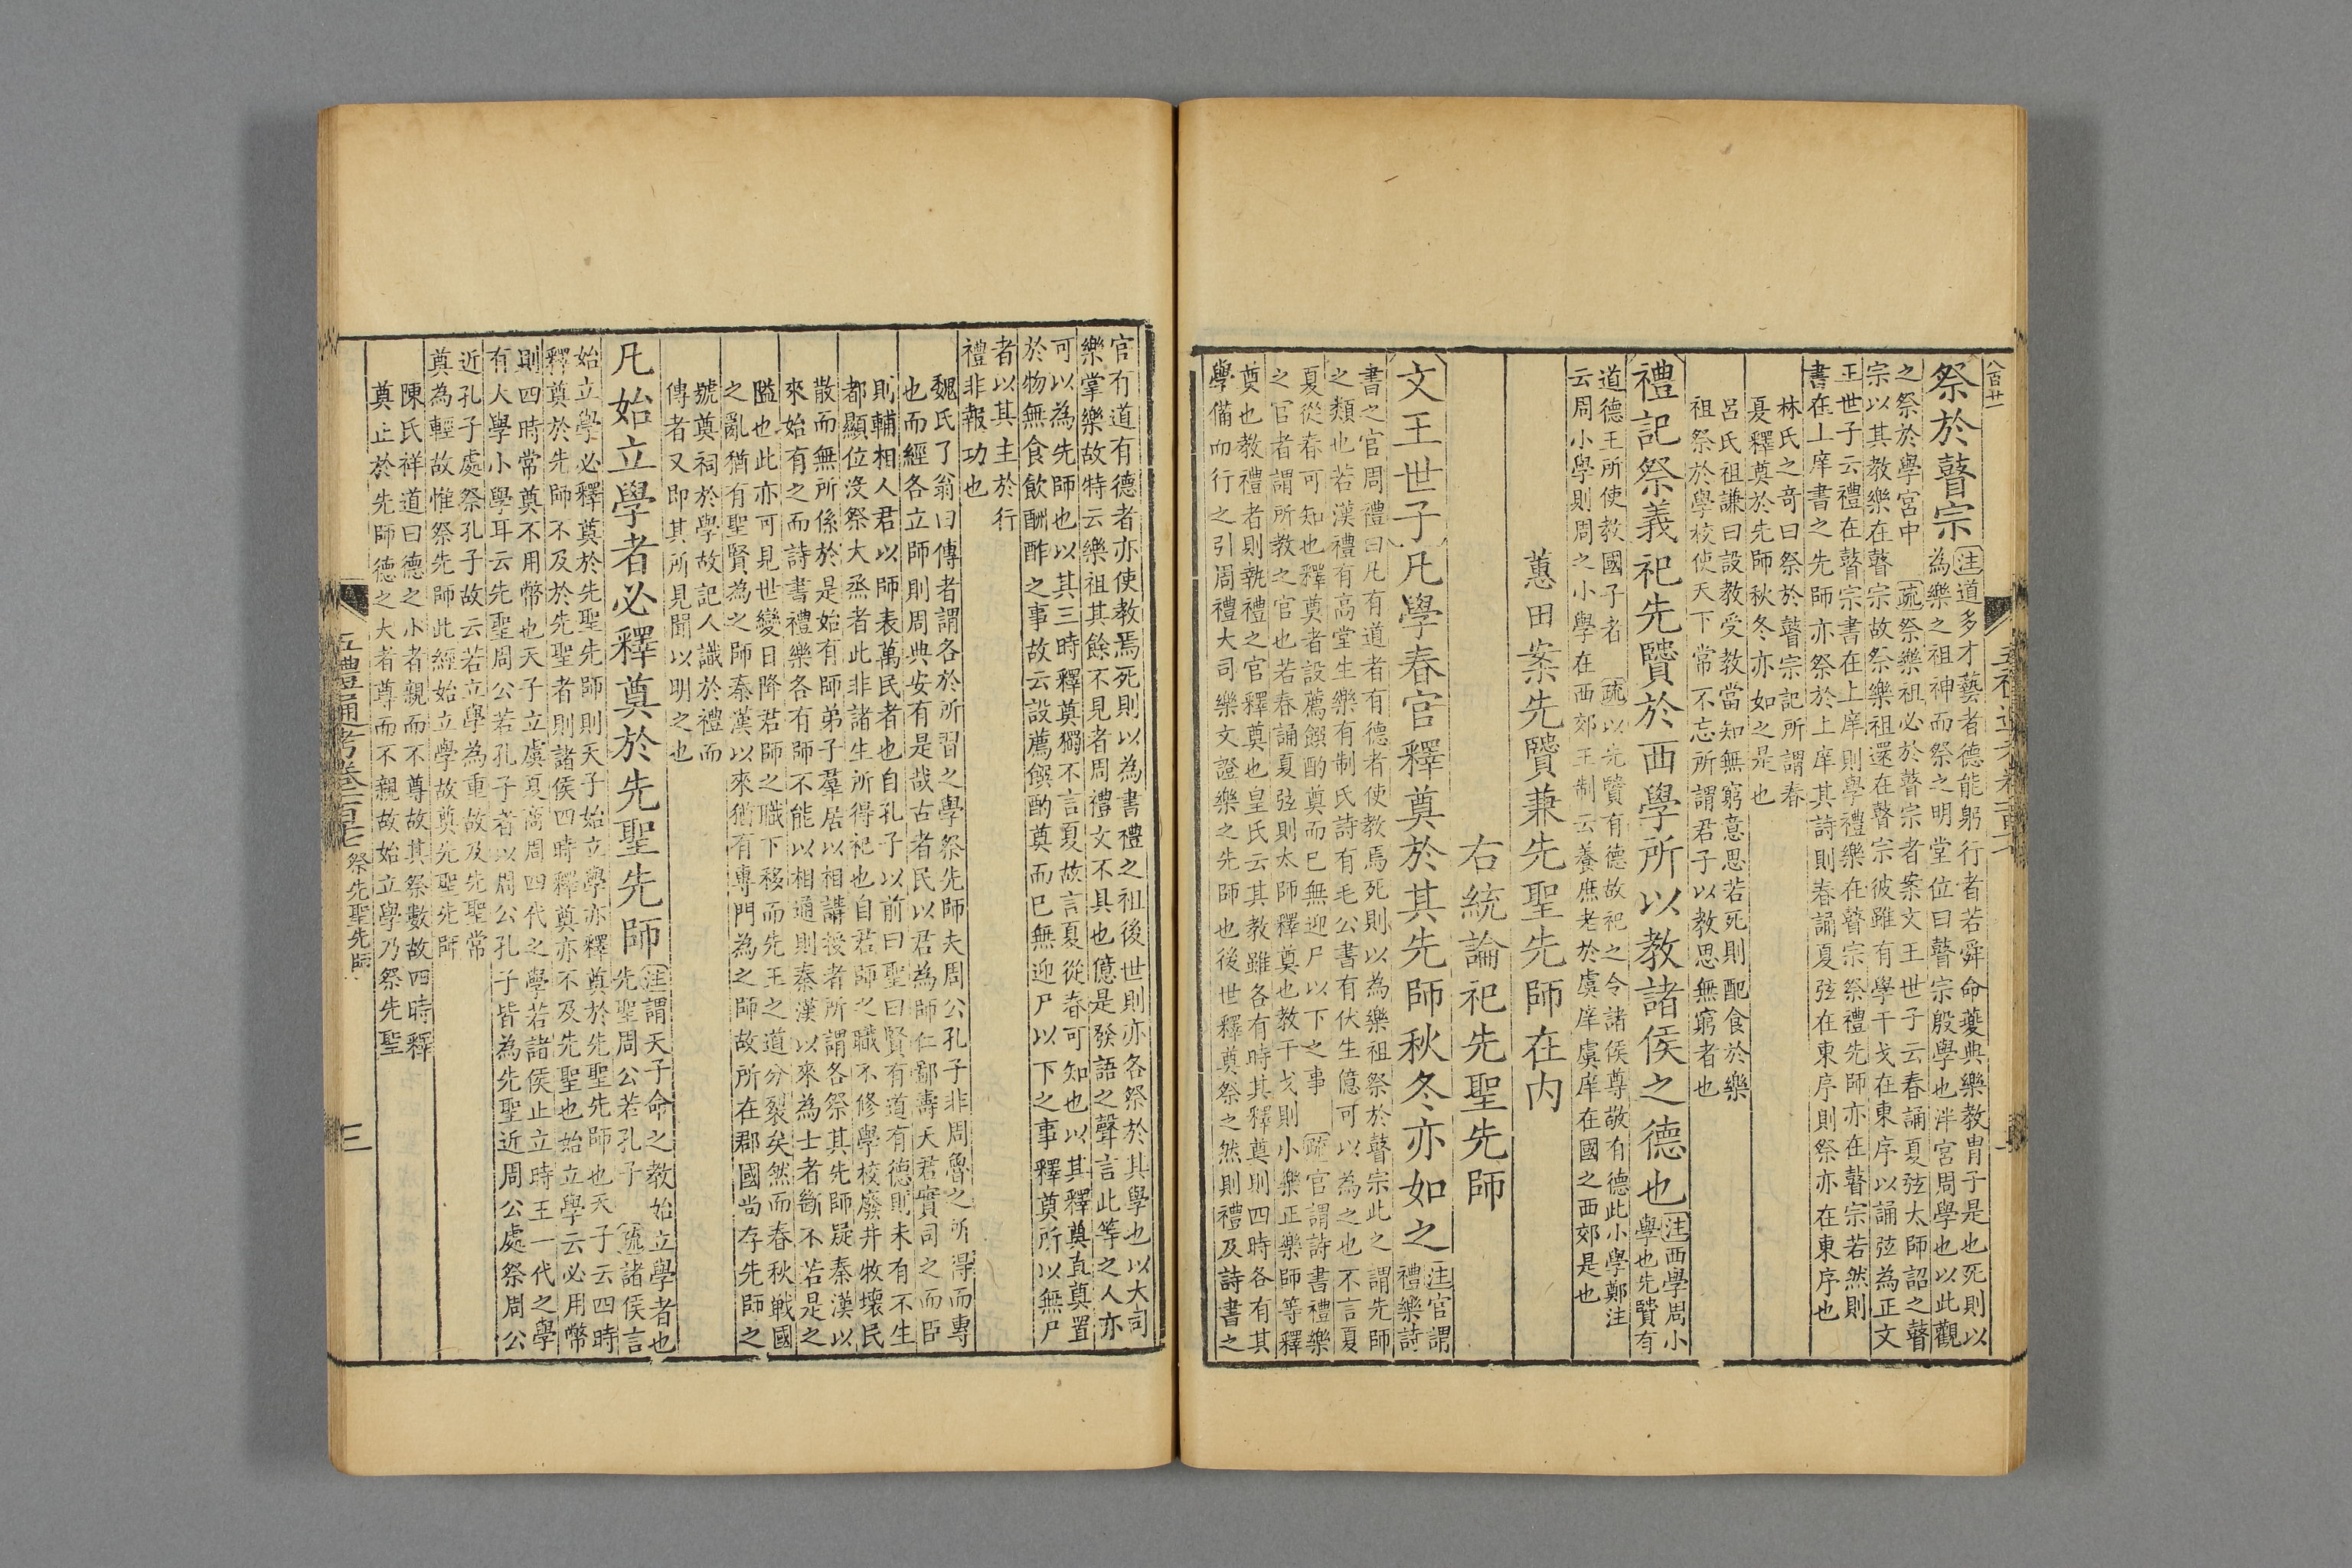 八百廿一
祭於瞽宗
注道多才藝者德能躬行者若舜命夔典樂教胄子是也死則以
為樂之祖神而祭之明堂位曰瞽宗殷學也泮宮周學也以此觀
之祭於學宮中 疏祭樂祖必於瞽宗者案文王世子云春誦夏弦太師詔之瞽
宗以其教樂在瞽宗故祭樂祖還在瞽宗彼雖有學干戈在東序以誦弦為正文
王世子云禮在瞽宗書在上庠則學禮樂在瞽宗祭禮先師亦在瞽宗若然則
書在上庠書之先師亦祭於上庠其詩則春誦夏弦在東序則祭亦在東序也
林氏之奇曰祭於瞽宗記所謂春
夏釋奠於先師秋冬亦如之是也
呂氏祖謙曰設教受教當知無窮意思若死則配食於樂
祖祭於學校使天下常不忘所謂君子以教思無窮者也
禮記祭義祀先賢於西學所以教諸侯之德也
注西學周小
學也先賢有
道德王所使教國子者 疏以先賢有德故祀之令諸侯尊敬有德此小學鄭注
云周小學則周之小學在西郊王制云養庶老於虞庠虞庠在國之西郊是也
蕙田案先賢兼先聖先師在内
右統論祀先聖先師
文王世子凡學春官釋奠於其先師秋冬亦如之
注官謂
禮樂詩
書之官周禮曰凡有道者有德者使教焉死則以為樂祖祭於瞽宗此之謂先師
之類也若漢禮有高堂生樂有制氏詩有毛公書有伏生億可以為之也不言夏
夏從春可知也釋奠者設薦饌酌奠而已無迎尸以下之事 疏官謂詩書禮樂
之官者謂所教之官也若春誦夏弦則太師釋奠也教干戈則小樂正樂師等釋
奠也教禮者則執禮之官釋奠也皇氏云其教雖各有時其釋奠則四時各有其
學備而行之引周禮大司樂文證樂之先師也後世釋奠祭之然則禮及詩書之
官有道有德者亦使教焉死則以為書禮之祖後世則亦各祭於其學也以大司
樂掌樂故特云樂祖其餘不見者周禮文不具也億是發語之聲言此等之人亦
可以為先師也以其三時釋奠獨不言夏故言夏從春可知也以其釋奠直奠置
於物無食飲酬酢之事故云設薦饌酌奠而已無迎尸以下之事釋奠所以無尸
者以其主於行
禮非報功也
魏氏了翁曰傳者謂各於所習之學祭先師夫周公孔子非周魯之所得而專
也而經各立師則周典安有是哉古者民以君為師仁鄙壽夭君實司之而臣
則輔相人君以師表萬民者也自孔子以前曰聖曰賢有道有德則未有不生
都顯位沒祭大烝者此非諸生所得祀也自君師之職不修學校廢井牧壞民
散而無所係於是始有師弟子羣居以相講授者所謂各祭其先師疑秦漢以
來始有之而詩書禮樂各有師不能以相通則秦漢以來為士者斷不若是之
隘也此亦可見世變日降君師之職下移而先王之道分裂矣然而春秋戰國
之亂猶有聖賢為之師秦漢以來猶有專門為之師故所在郡國尚存先師之
號奠祠於學故記人識於禮而
傳者又即其所見聞以明之也
凡始立學者必釋奠於先聖先師
注謂天子命之教始立學者也
先聖周公若孔子 疏諸侯言
始立學必釋奠於先聖先師則天子始立學亦釋奠於先聖先師也天子云四時
釋奠於先師不及於先聖者則諸侯四時釋奠亦不及先聖也始立學云必用幣
則四時常奠不用幣也天子立虞夏商周四代之學若諸侯止立時王一代之學
有大學小學耳云先聖周公若孔子者以周公孔子皆為先聖近周公處祭周公
近孔子處祭孔子故云若立學為重故及先聖常
奠為輕故惟祭先師此經始立學故奠先聖先師
陳氏祥道曰德之小者親而不尊故其祭數故四時釋
奠止於先師德之大者尊而不親故始立學乃祭先聖
五禮通考卷一百十七 祭先聖先師
三